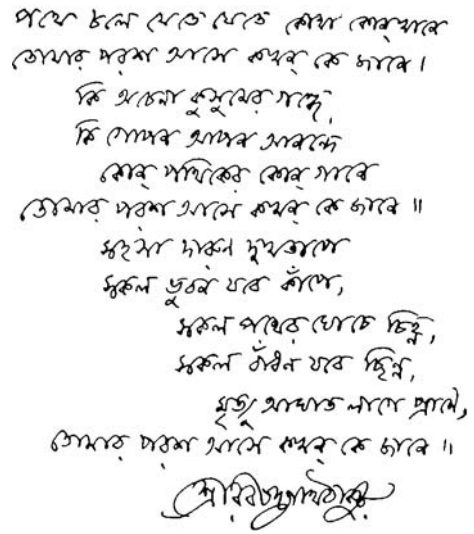 পথে চলে যেতে যেতে কোথা কোন্‌খানে
তোমার পরশ আসে কখন্ কে জানে।
কি অচেনা কুসুমের গন্ধে,
কি গোপন আপন আনন্দে
কোন্ পথিকের কোন্ গানে
তোমার পরশ আসে কখন্ কে জানে॥
সহসা দারুন দুখতাপে
সকল ভুবন যবে কাঁপে,
সকল পথের ঘোচে চিহ্ন,
সকল বাঁধন যবে ছিন্ন,
মৃত্যু আঘাত লাগে প্রাণে,
তোমার পরশ আসে কখন্ কে জানে॥
শ্রীরবীন্দ্রনাথ ঠাকুর